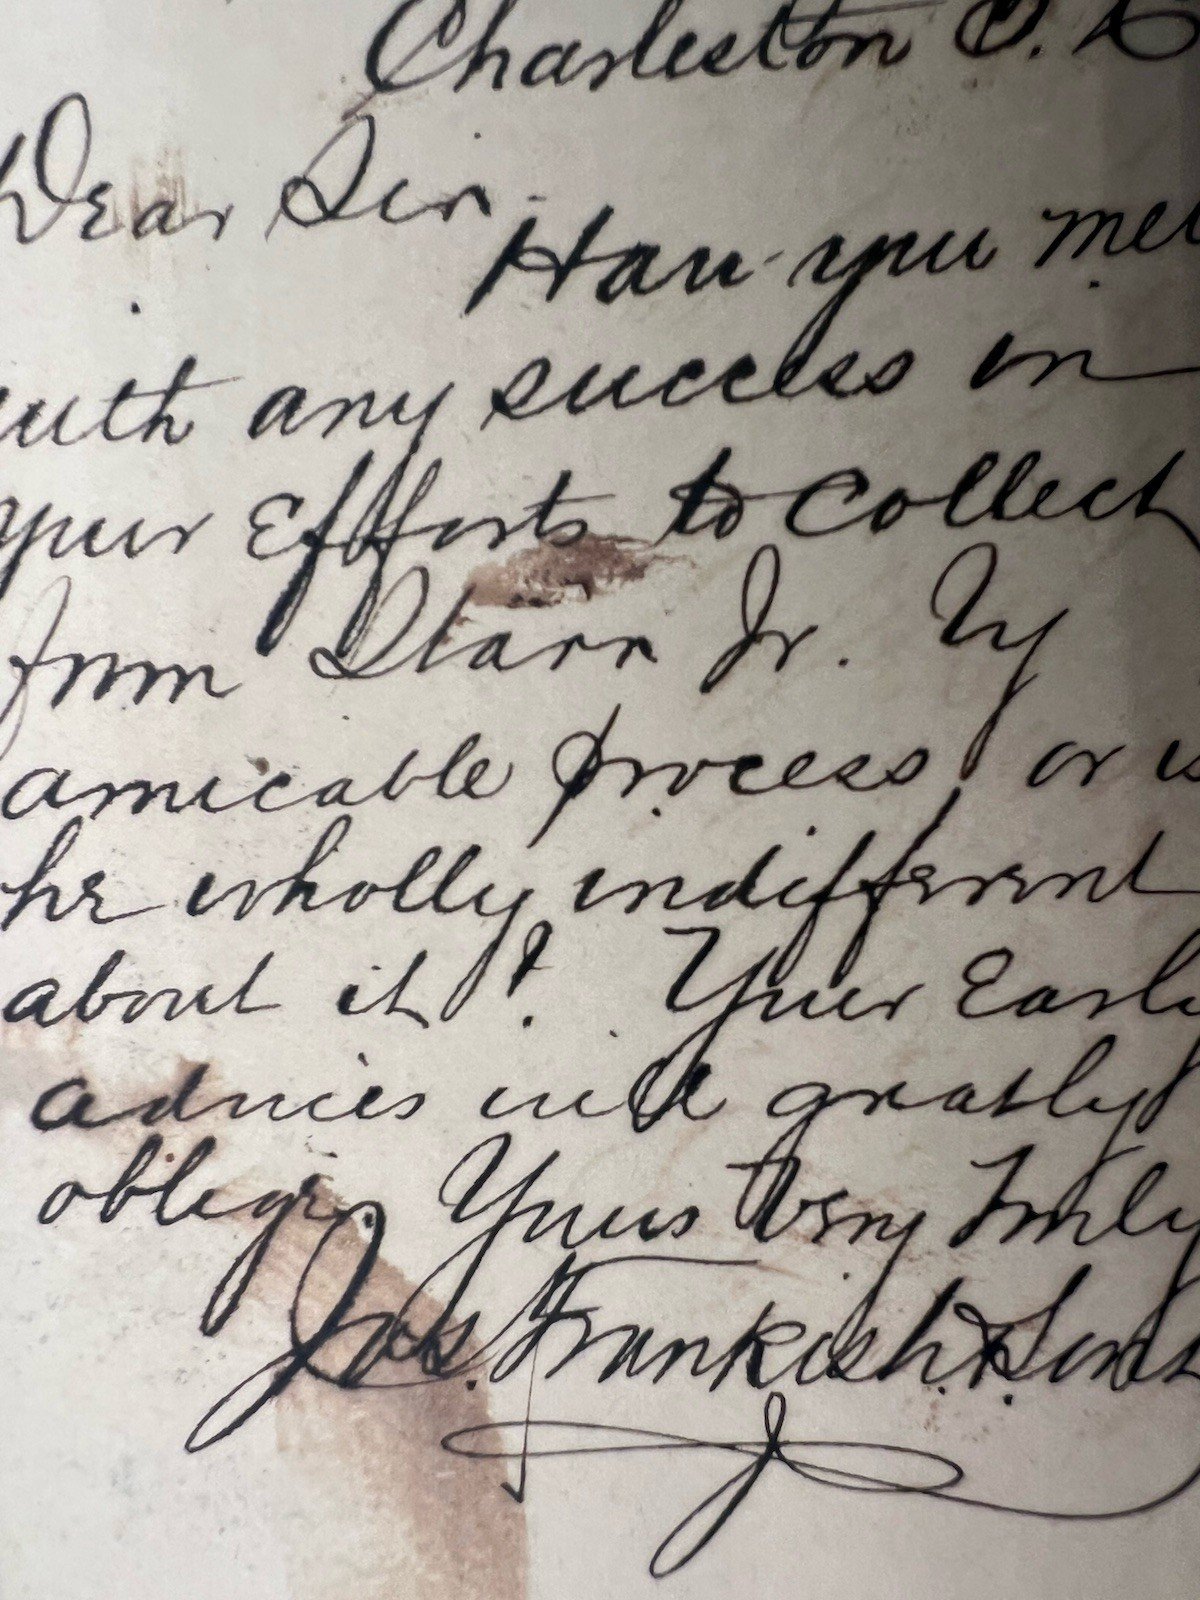 Charleston O.
Dear Sir.
Have you met
with any success in
your Efforts to Collect
from Starr Jr. By
amicable process or is
he wholly indifferent
about it? Your Early
advices will greatly
oblige, Yours Very Truly
Jas. Frankish & Sons